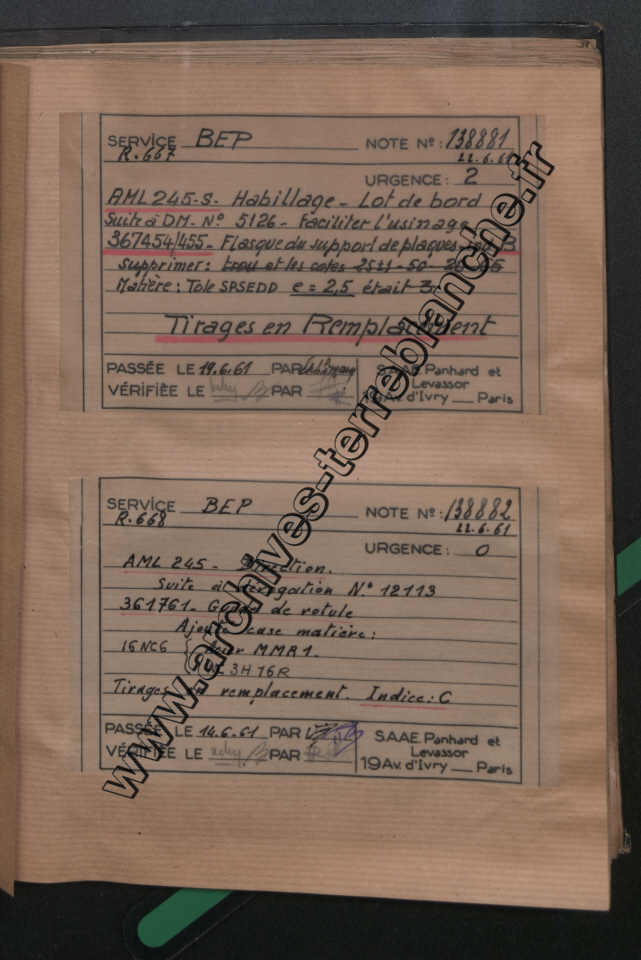 SERVICE BEP NOTE Nº: 138881
R.667 22.6.61
URGENCE: 2
AML 245-S. Habillage - Lot de bord
Suite à DM. Nº 5126 - Faciliter l'usinage
367454/455 - Flasque du support de plaques - B
Supprimer: trou et les cotes 25±1 - 50
Matière: Tole SPSEDD e = 2,5 était 3
Tirages en Remplacement
PASSÉE LE 19.6.61 PAR
VÉRIFIÉE LE PAR
S.A.AE. Panhard et
Levassor
19 Av. d'Ivry __ Paris
SERVICE BEP NOTE Nº: 138882
R.668 22.6.61
URGENCE: 0
AML 245 - Direction.
Suite à dérogation Nº 12113
361761 - de rotule
Ajouter case matière:
16NC6 pour MMR1.
3H16R
Tirages en remplacement. Indice: C
PASSÉE LE 14.6.61 PAR
VÉRIFIÉE LE PAR
S.A.AE. Panhard et
Levassor
19 Av. d'Ivry __ Paris
www.archives-terreblanche.fr